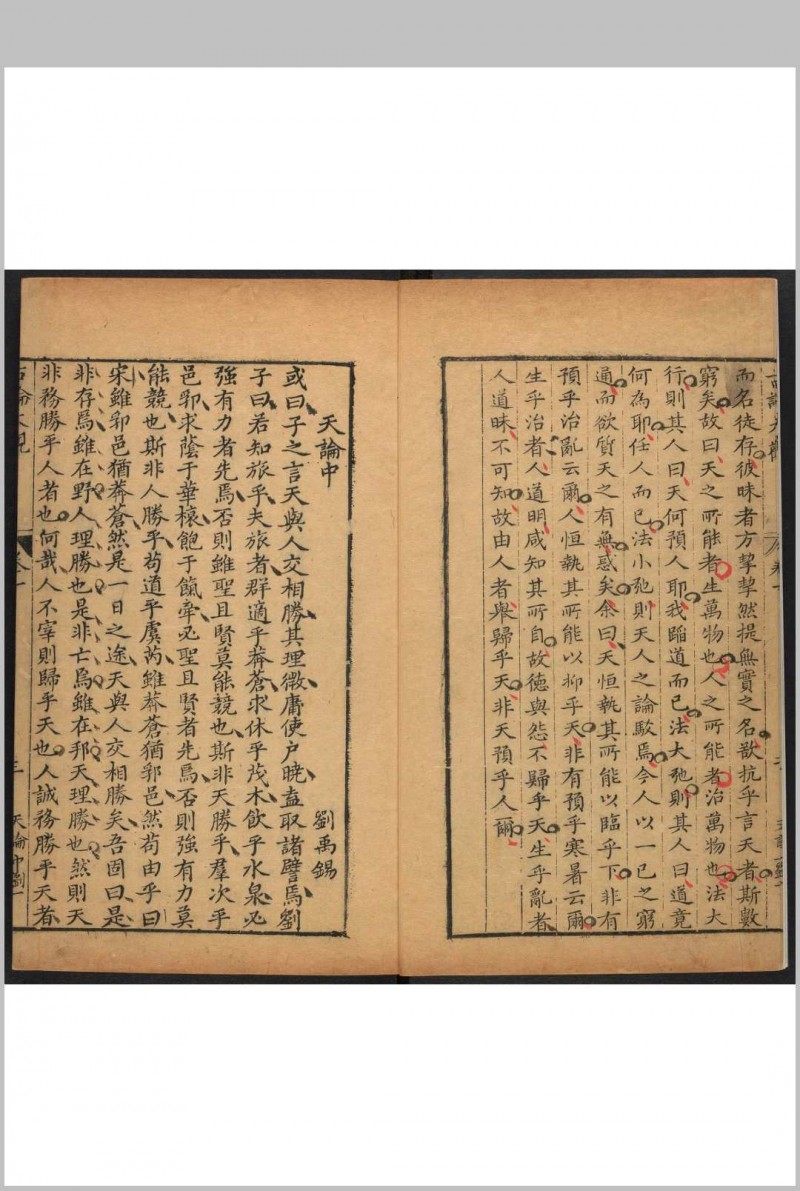 而名徒存彼昧者方挈挈然提無實之名欲抗乎言天者斯數
窮矣故曰天之所能者生萬物也人之所能者治萬物也法大
行則其人曰天何預人耶我蹈道而已法大弛則其人曰道竟
何為耶任人而已法小弛則天人之論駁焉今人以一已之窮
通而欲質天之有無惑矣余曰天恒執其所能以臨乎下非有
預乎治亂云爾人恒執其所能以仰乎天非有預乎寒暑云爾
生乎治者人道明咸知其所自故德與怨不歸乎天生乎亂者
人道昧不可知故由人者舉歸乎天非天預乎人爾
天論中
劉禹錫
或曰子之言天與人交相勝其理微庸使户曉盍取諸譬焉劉
子曰若知旅乎夫旅者群適乎莽蒼求休乎茂木飲乎水泉必
強有力者先焉否則雖聖且賢莫能競也斯非天勝乎羣次乎
邑郛求蔭于華榱飽于餼牽必聖且賢者先焉否則強有力莫
能競也斯非人勝乎苟道乎虞芮雖莽蒼猶郛邑然苟由乎曰
宋雖郛邑猶莽蒼然是一日之途天與人交相勝矣吾固曰是
非存焉雖在野人理勝也是非亡焉雖在邦天理勝也然則天
非務勝乎人者也何哉人不宰則歸乎天也人誠務勝乎天者
卷一
三
天論中劉